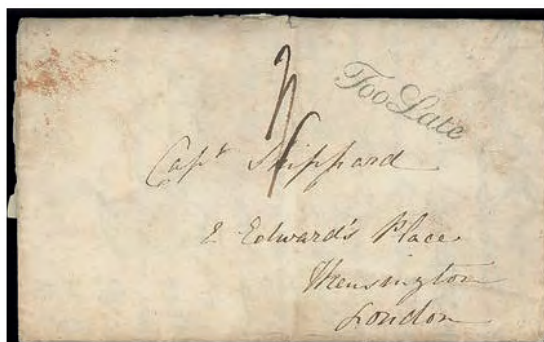 Too Late
Capt Shippard
2 Edward's Place
Kensington
London